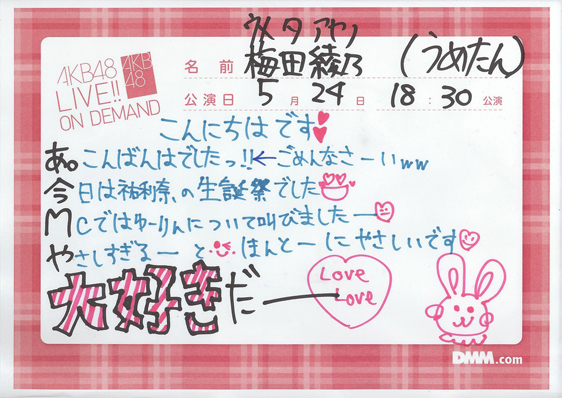 AKB48
LIVE!!
ON DEMAND
AKB
48
ウメタ アヤノ
名前 梅田綾乃 (うめたん)
公演日 5月24日 18:30公演
こんにちはです
あ。こんばんはでしたっ!!←ごめんなさーいww
今日は祐利奈、の生誕祭でした
MCではゆーりんについて叫びましたー
やさしすぎるーと ほんとーにやさしいです
大好きだー
Love
Love
DMM.com